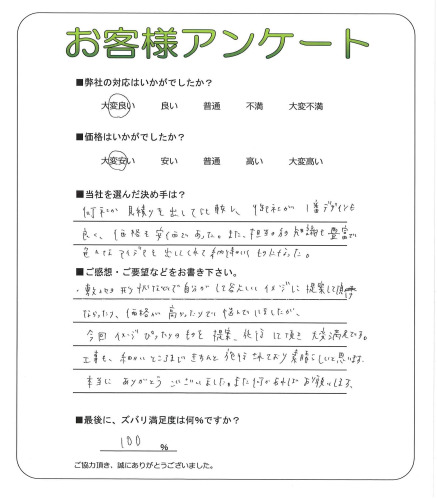 お客様アンケート
■弊社の対応はいかがでしたか？
大変良い 良い 普通 不満 大変不満
■価格はいかがでしたか？
大変安い 安い 普通 高い 大変高い
■当社を選んだ決め手は？
何社か見積りを出してもらい 1番デザインも
良く、価格も安価であった。また、担当の の知識も豊富で
色々なアイデアを出してくれて
■ご感想・ご要望などをお書き下さい。
・敷地が 自分が イメージに提案して頂け
なかったり、価格が高かったりで悩んでいましたが、
今回イメージぴったりのものを提案、施行して頂き大変満足です。
工事も、細かいところまできちんと施行されており素晴らしいと思います。
本当にありがとうございました。また何かあればお願いします。
■最後に、ズバリ満足度は何%ですか？
100 %
ご協力頂き、誠にありがとうございました。